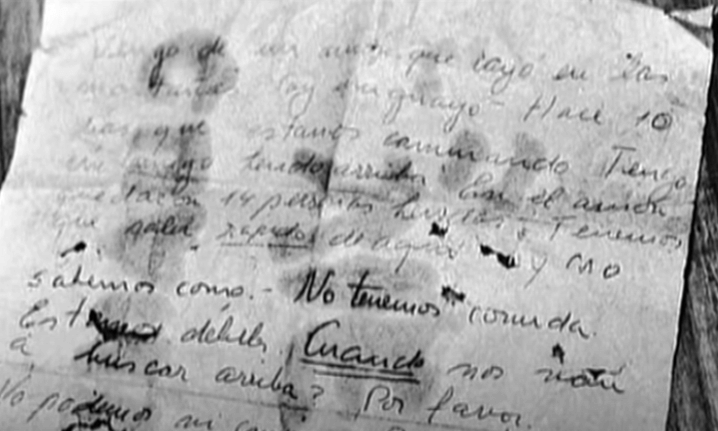 Vengo de un avión que cayó en las
montañas. Soy uruguayo. Hace 10
días que estamos caminando. Tengo
un amigo herido arriba. En el avión
quedaron 14 personas heridas. Tenemos
que salir rápido de aquí y no
sabemos como.- No tenemos comida.
Estamos débiles. Cuando nos van
a buscar arriba? Por favor.
No podemos ni